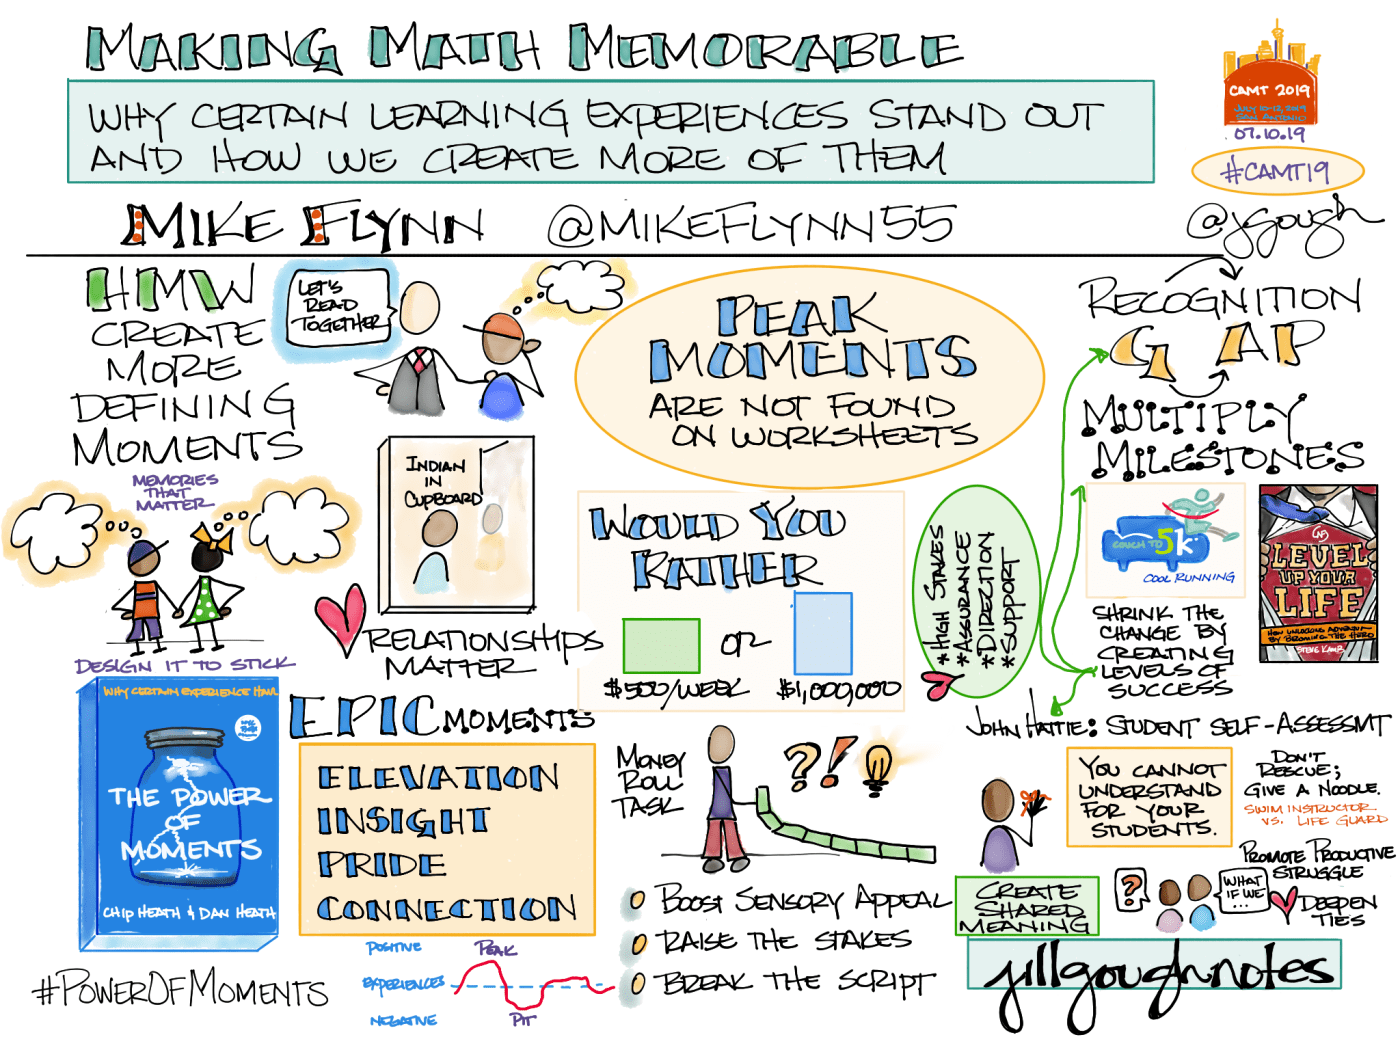 MAKING MATH MEMORABLE
WHY CERTAIN LEARNING EXPERIENCES STAND OUT
AND HOW WE CREATE MORE OF THEM
MIKE FLYNN @MIKEFLYNN55
CAMT 2019
JULY 10-12, 2019
SAN ANTONIO
07.10.19
#CAMT19
@jgough
HMW
CREATE
MORE
DEFINING
MOMENTS
MEMORIES
THAT
MATTER
DESIGN IT TO STICK
LET'S
READ
TOGETHER
INDIAN
IN
CUPBOARD
RELATIONSHIPS
MATTER
WHY CERTAIN EXPERIENCE HAVE
THE POWER
OF
MOMENTS
CHIP HEATH & DAN HEATH
#POWEROFMOMENTS
EPIC MOMENTS
ELEVATION
INSIGHT
PRIDE
CONNECTION
POSITIVE
PEAK
EXPERIENCES
NEGATIVE
PIT
PEAK
MOMENTS
ARE NOT FOUND
ON WORKSHEETS
WOULD YOU
RATHER
OR
$500/WEEK $1,000,000
MONEY
ROLL
TASK
?!
BOOST SENSORY APPEAL
RAISE THE STAKES
BREAK THE SCRIPT
*HIGH STAKES
*ASSURANCE
*DIRECTION
*SUPPORT
RECOGNITION
GAP
MULTIPLY
MILESTONES
COUCH TO 5K
COOL RUNNING
LEVEL
UP YOUR
LIFE
HOW UNLOCKING ADVENTURE
BY BECOMING THE HERO
STEVE KAMB
SHRINK THE
CHANGE BY
CREATING
LEVELS OF
SUCCESS
JOHN HATTIE: STUDENT SELF-ASSESSMT
YOU CANNOT
UNDERSTAND
FOR YOUR
STUDENTS.
DON'T
RESCUE;
GIVE A NOODLE.
SWIM INSTRUCTOR
VS. LIFE GUARD
PROMOTE PRODUCTIVE
STRUGGLE
CREATE
SHARED
MEANING
?
WHAT
IF WE
...
DEEPEN
TIES
jillgoughnotes